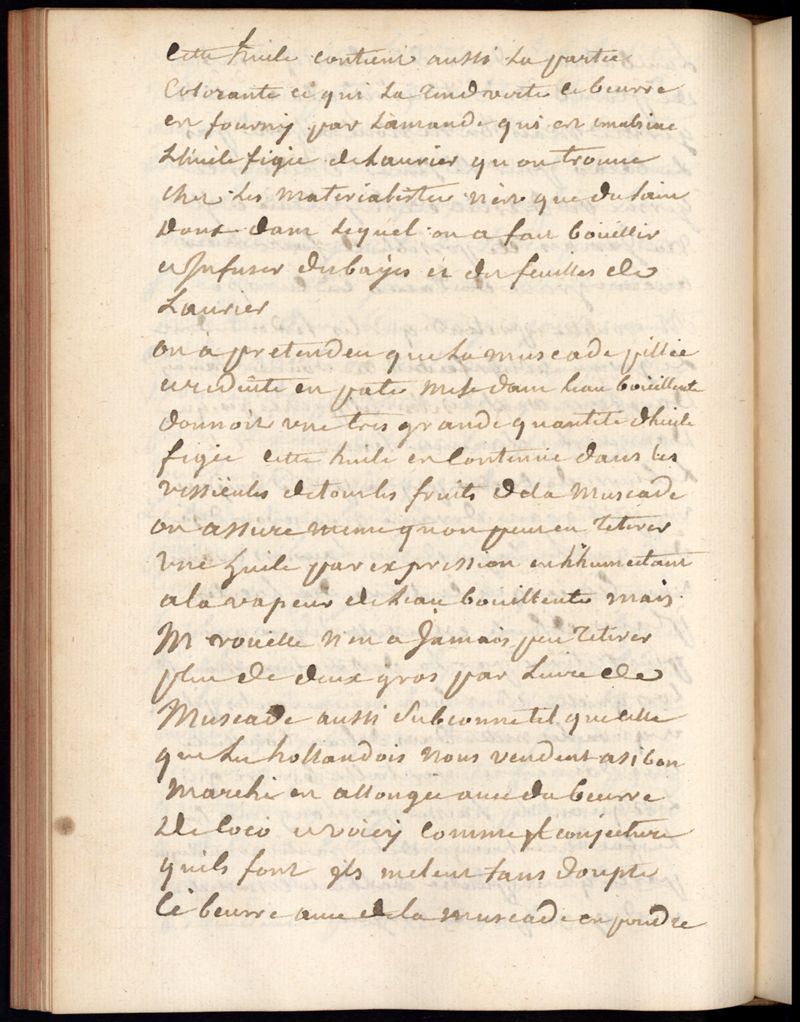 Cette huile contient aussi la partie
Colorante ce qui la rend verte ce beurre
est fourny par l'amande qui est emulsive
L'huile figée de Laurier qu on trouve
chez les materialistes n'est que du sain
doux dans lequel on a fait boüillir
et Infuser des bayes et des feuilles de
Laurier
on a pretendeu que la muscade pillée
et reduite en pate mise dans leau boüillente
donnoit une tres grande quantite dhuile
figée cette huile est Contenue dans les
vessicules de tous les fruits de la Muscade
on assure meme qu on peut en retirer
une huile par expression en lhumectant
a la vapeur de leau bouillente mais
M rouelle n en a Jamais peu retirer
plus de deux gros par Livre de
Muscade aussi Subconnetil que celle
que les hollandois nous vendent a si bon
Marché est allongée avec du beurre
de Coco et voicy comme Il conjecture
quils font Ils melent sans doupte
Ce beurre avec de la muscade en poudre